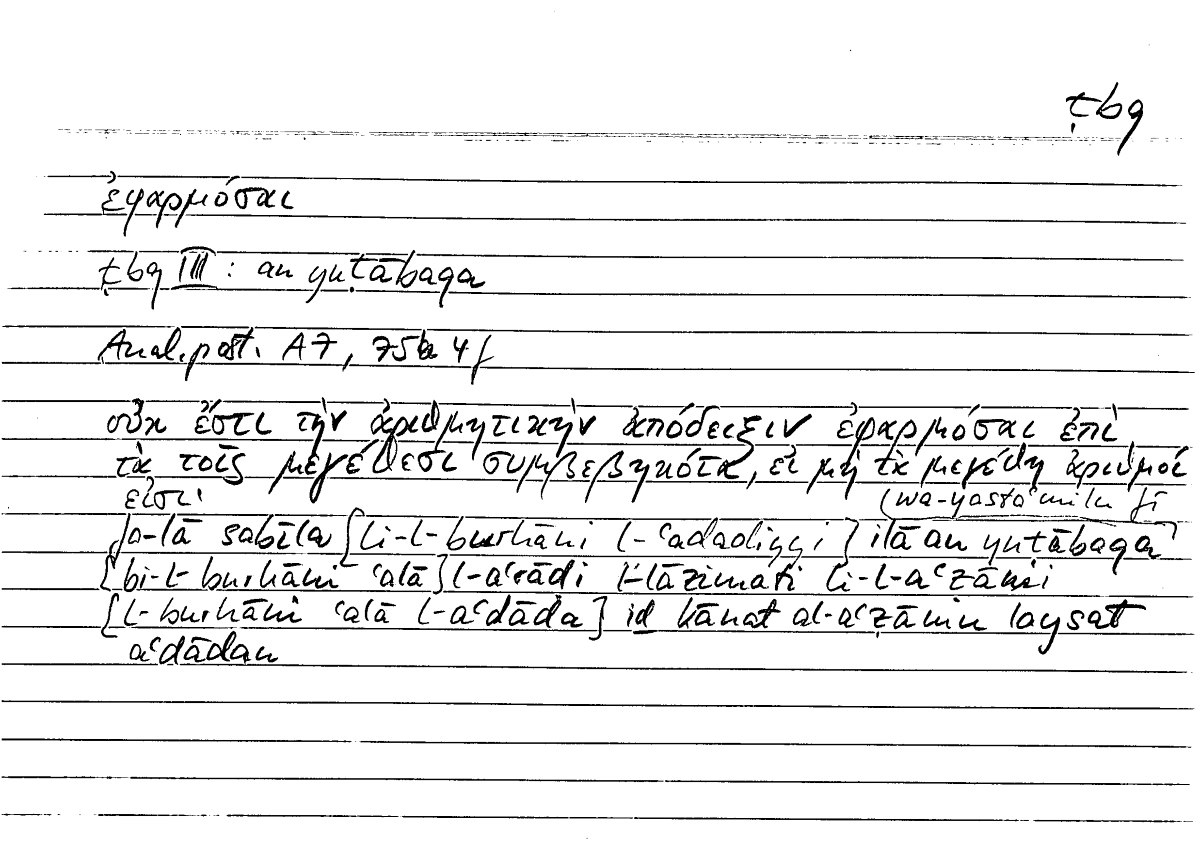 ṭbq
ἐφαρμόσαι
ṭbq III : an yuṭābaqa
Anal. post. A 7, 75b 4 f
οὐκ ἔστι τὴν ἀριθμητικὴν ἀπόδειξιν ἐφαρμόσαι ἐπὶ
τὰ τοῖς μεγέθεσι συμβεβηκότα, εἰ μὴ τὰ μεγέθη ἀριθμοί
εἰσι·
(wa-yastaʿmilu fī
fa-lā sabīla [li-l-burhāni l-ʿadadiyyi] ilā an yuṭābaqa
[bi-l-burhāni ʿalā] l-aʿrāḍi l-lāzimati li-l-aʿẓāmi
[l-burhāni ʿalā l-aʿdāda] iḏ kānat al-aʿẓāmu laysat
aʿdādan